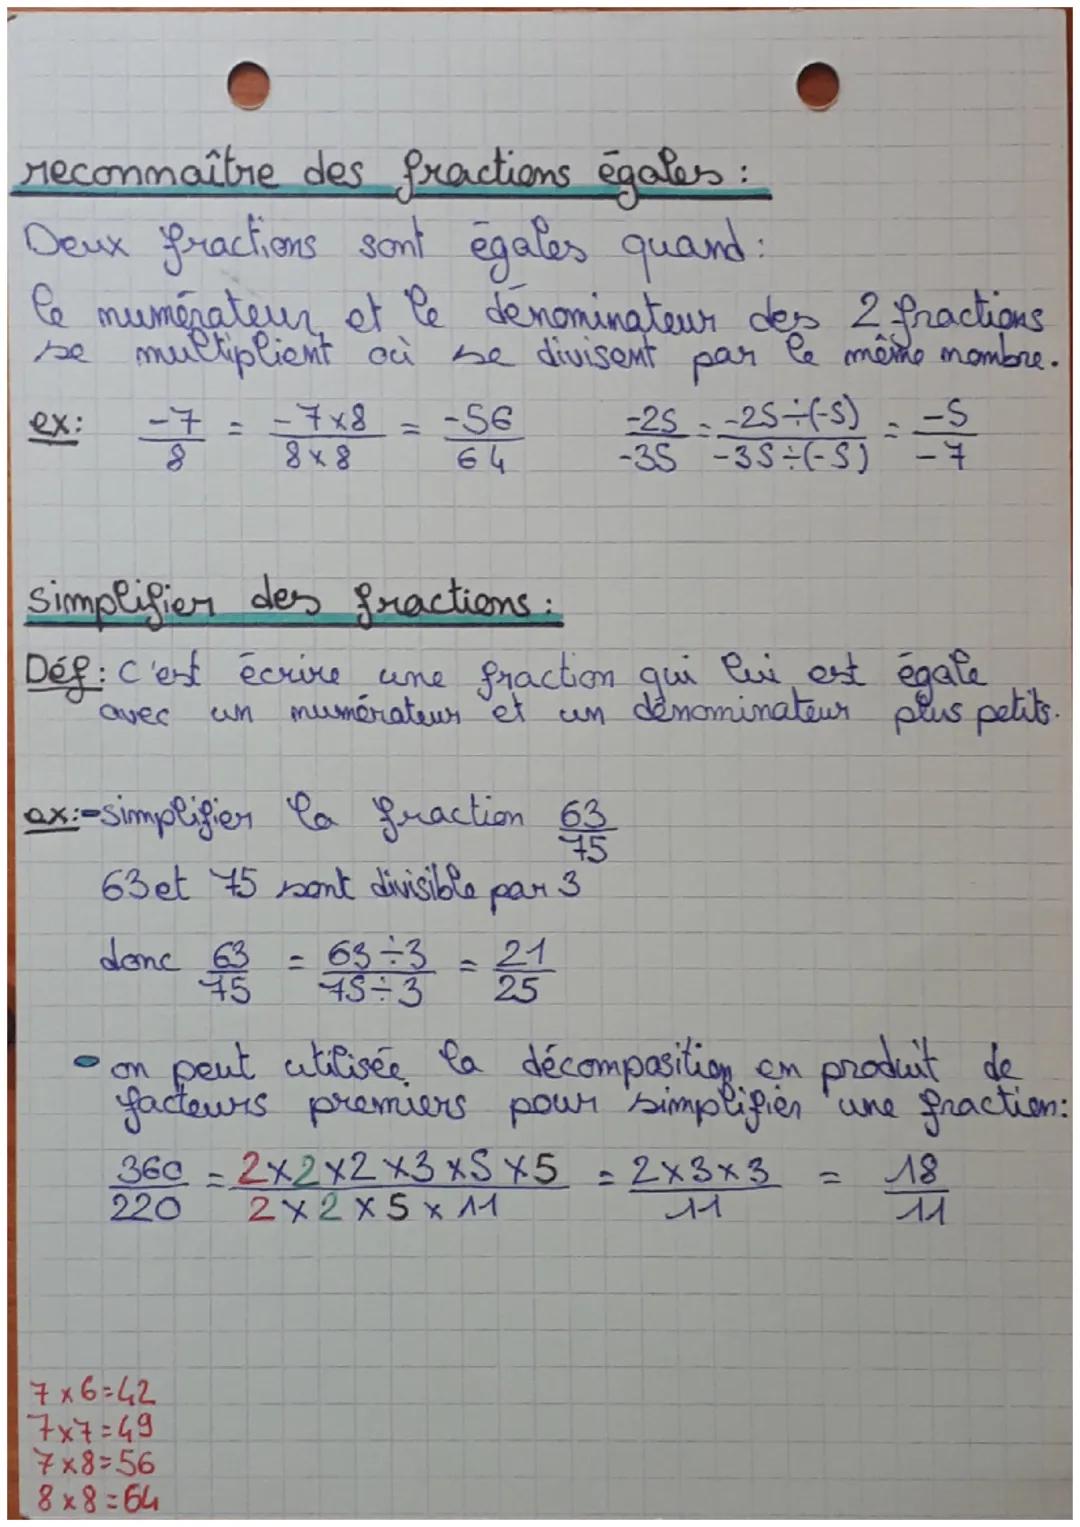 reconnaître des fractions égales :
Deux fractions sont égales quand :
le numérateur et le dénominateur des 2 fractions
se multiplient où se divisent par le même nombre.
ex: -7/8 = -7×8/8×8 = -56/64 -25/-35 = -25÷(-5)/-35÷(-5) = -5/-7
simplifier des fractions :
Déf : C'est écrire une fraction qui lui est égale
avec un numérateur et un dénominateur plus petits.
ex: - simplifier la fraction 63/75
63 et 75 sont divisible par 3
donc 63/75 = 63÷3/75÷3 = 21/25
• on peut utilisée la décomposition en produit de
facteurs premiers pour simplifier une fraction :
360/220 = 2×2×2×3×5×5/2×2×5×11 = 2×3×3/11 = 18/11
7×6=42
7×7=49
7×8=56
8×8=64